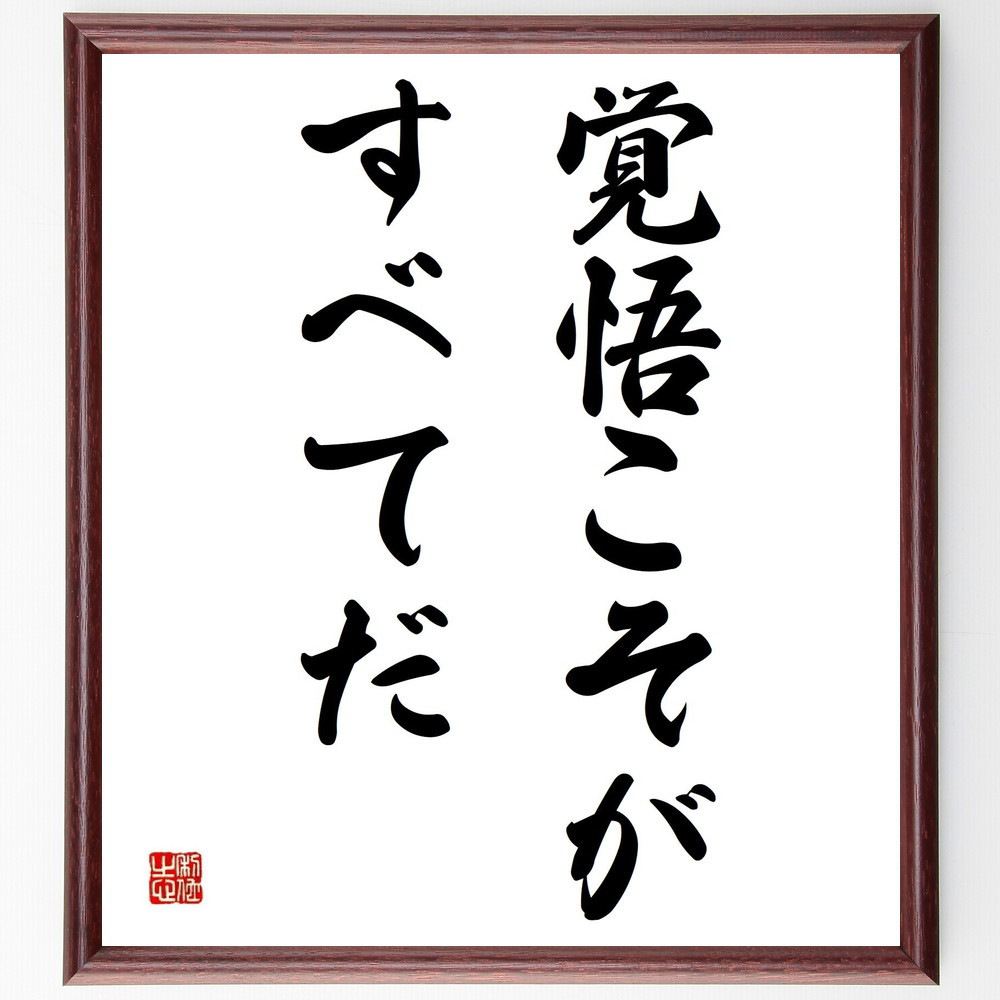 覚悟こそが
すべてだ